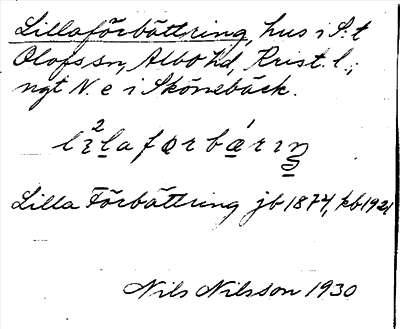 Lillaförbättring, hus i S:t
Olofs sn, Albo hd, Krist. l.;
ngt N. e i Skönebäck.
Lilla Förbättring jb 1874, kb 1921
Nils Nilsson 1930